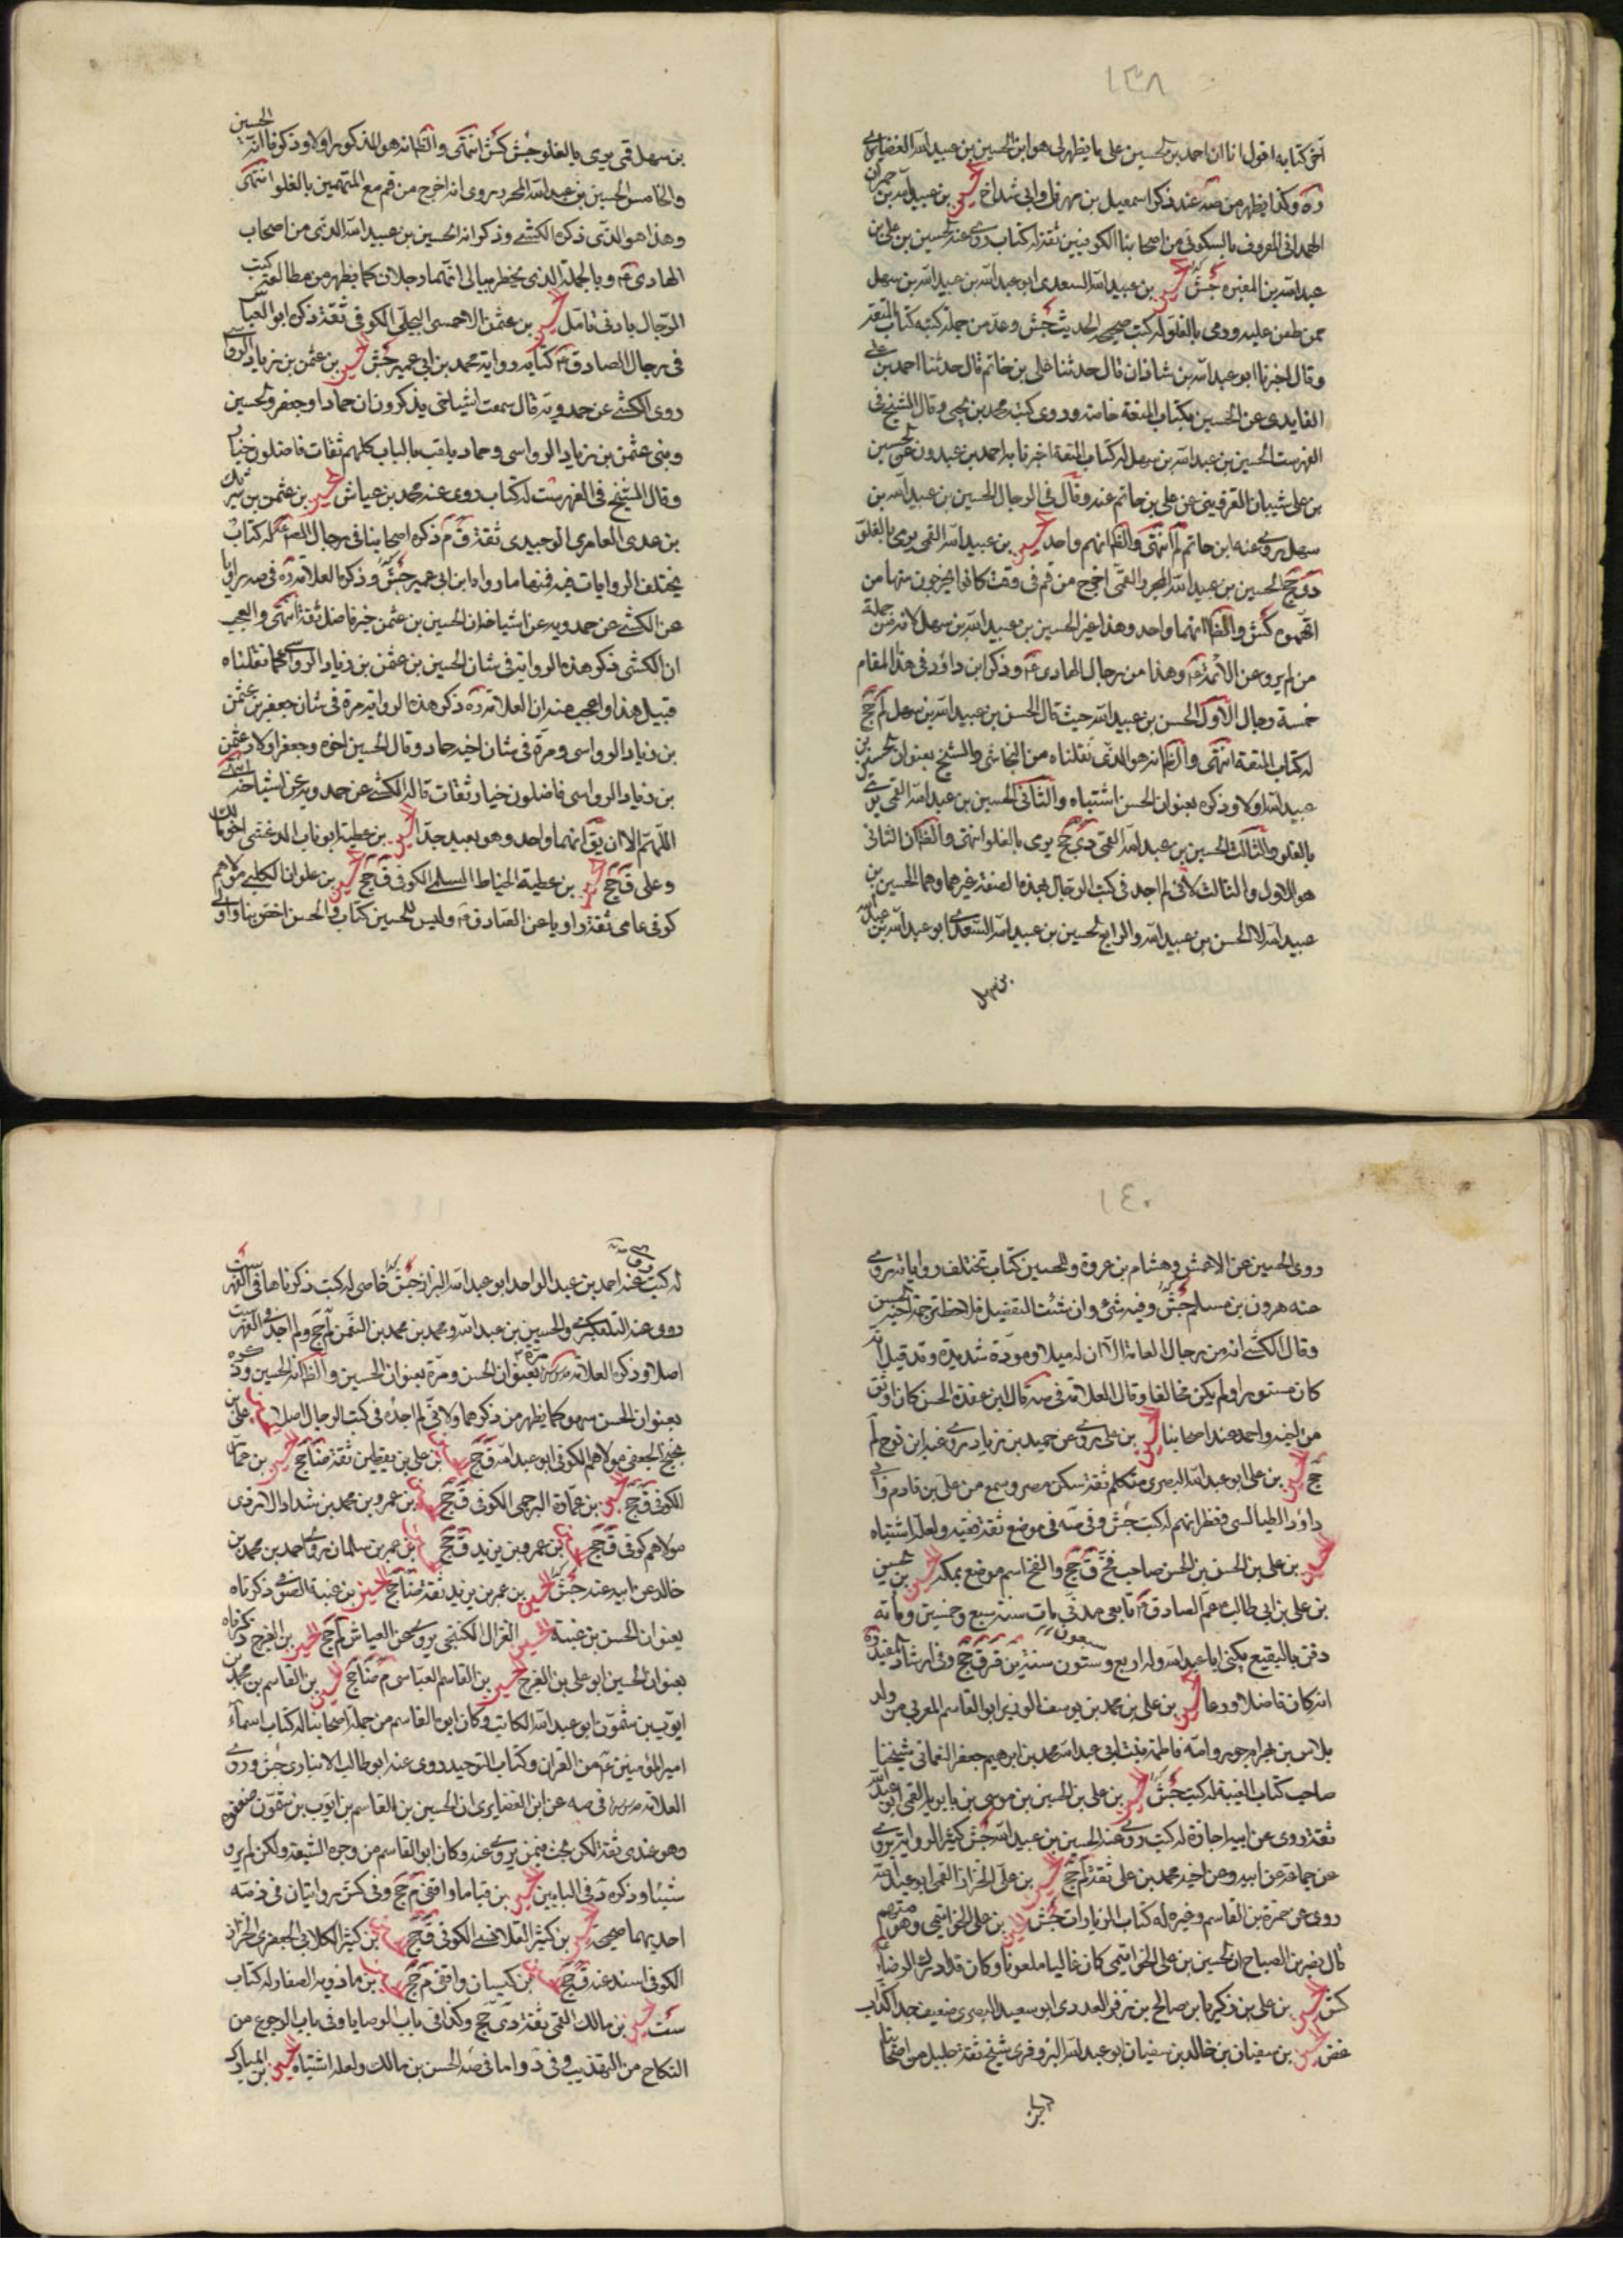 ١٣٨
آخر كتابه اقول انا ان احمد بن الحسين على ما يظهر لى هو ابن الحسين بن عبيد الله الغضايرى
ره وكذا يظهر من صه عند ذكر اسمعيل بن مهران وابى شداخ الحسين بن عبيد الله بن حمران
الهمدانى المعروف بالسكونى من اصحابنا الكوفيين ثقة له كتاب روى عنه الحسين بن على بن
عبد الله بن المغيرة جش الحسين بن عبيد الله السعدى ابو عبد الله بن عبيد الله بن سهل
ممن طعن عليه ورمى بالغلو له كتب صحيحة الحديث جش وعد من جملة كتبه كتاب المتعة
وقال اخبرنا ابو عبد الله بن شاذان قال حدثنا على بن حاتم قال حدثنا احمد بن على
الفايدى عن الحسين بكتاب المتعة خاصة وروى كتبه محمد بن يحيى وقال الشيخ فى
الفهرست الحسين بن عبيد الله بن سهل له كتاب المتعة اخبرنا به احمد بن عبدون عن الحسين
بن على بن شيبان القزوينى عن على بن حاتم عنه وقال فى الرجال الحسين بن عبيد الله بن
سهل روى عنه ابن حاتم لم انتهى والظ انهم واحد الحسين بن عبيد الله القمى يرمى بالغلو
دى جخ الحسين بن عبيد الله المحرر القمى اخرج من قم فى وقت كانوا يخرجون منها من
اتهموه كش والظ انهما واحد وهذا غير الحسين بن عبيد الله بن سهل لانه من جملة
من لم يرو عن الائمة ع وهذا من رجال الهادى ع وذكر ابن داود فى هذا المقام
خمسة رجال الاول الحسن بن عبيد الله حيث قال الحسن بن عبيد الله بن سهل لم جخ
له كتاب المتعة انتهى والظ انه هو الذى نقلناه من النجاشى والشيخ بعنوان الحسين بن
عبيد الله اولا وذكره بعنوان الحسن اشتباه والثانى الحسين بن عبد الله القمى يرمى
بالغلو والثالث الحسين بن عبيد الله القمى دى جخ يرمى بالغلو انتهى والظ ان الثانى
هو الاول والثالث لانى لم اجد فى كتب الرجال بهذه الصفة غيرهما وهما الحسين بن
عبيد الله لا الحسن بن عبيد الله والرابع الحسين بن عبيد الله السعدى ابو عبد الله بن عبيد الله
بن سهل
بن سهل قمى يرمى بالغلو جش كش انتهى والظ انه هو المذكور اولا وذكرنا انه الحسين
والخامس الحسين بن عبد الله المحرر روى انه اخرج من قم مع المتهمين بالغلو انتهى
وهذا هو الذى ذكره الكشى وذكر انه الحسين بن عبيد الله الذى من اصحاب
الهادى ع وبالجملة الذى يخطر ببالى انهما رجلان كما يظهر من مطالعة كتب
الرجال بادنى تامل الحسين بن عثمن الاحمسى البجلى الكوفى ثقة ذكره ابو العباس
فى رجال الصادق ع كتابه رواية محمد بن ابى عمير جش الحسين بن عثمن بن زياد الرواسى
روى الكشى عن حمدويه قال سمعت اشياخى يذكرون ان حمادا وجعفر والحسين
وبنى عثمن بن زياد الرواسى وحماد يلقب بالناب كلهم ثقات فاضلون خيار
وقال الشيخ فى الفهرست له كتاب روى عنه محمد بن عياش الحسين بن عثمن بن شريك
بن عدى العامرى الوحيدى ثقة ق م ذكره اصحابنا فى رجال الصم ع له كتاب
يختلف الروايات فيه فمنها ما رواه ابن ابى عمير جش وذكره العلامة ره فى صه راويا
عن الكشى عن حمدويه عن اشياخه ان الحسين بن عثمن خير فاضل ثقة انتهى والعجب
ان الكشى ذكر هذه الرواية فى شان الحسين بن عثمن بن زياد الرواسى كما نقلناه
قبيل هذا واعجب منه ان العلامة ره ذكر هذه الرواية مرة فى شان جعفر بن عثمن
بن زياد الرواسى ومرة فى شان اخيه حماد وقال الحسين اخوه وجعفر اولاد عثمن
بن زياد الرواسى فاضلون خيار ثقات قاله الكشى عن حمدويه عن اشياخه انتهى
اللهم الا ان يق انهما واحد وهو بعيد جدا الحسين بن عطية ابو ناب الدغشى اخو مالك
وعلى ق جخ الحسين بن عطية الحناط السلمى الكوفى ق جخ الحسين بن علوان الكلبى مولاهم
كوفى عامى ثقة راويا عن الصادق ع وليس للحسين كتاب والحسن اخص بنا واولى
١٤٠
روى الحسين عن الاعمش وهشام بن عروة وللحسين كتاب تختلف رواياته روى
عنه هرون بن مسلم جش وفيه شئ وان شئت التفصيل فلاحظ ترجمة اخيه الحسن
وقال الكشى انه من رجال العامة الا ان له ميلا ومودة شديدة وقد قيل انه
كان مستورا ولم يكن مخالفا وقال العلامة فى صه قال ابن عقدة الحسن كان اوثق
من اخيه واحمد عند اصحابنا الحسين بن على روى عن حميد بن زياد روى عنه ابن نوح لم
جخ الحسين بن على ابو عبد الله البصرى متكلم ثقة سكن مصر وسمع من على بن قادم وابى
داود الطيالسى ونظرائهم له كتب جش وفى صه فى موضع ثقة فقيه ولعله اشتباه
الحسين بن على بن الحسن بن الحسن صاحب فخ ق جخ والفخ اسم موضع بمكة الحسين بن الحسين
بن على بن ابى طالب ع عم الصادق ع تابعى مدنى مات سنة سبع وخمسين ومائة
دفن بالبقيع يكنى ابا عبد الله وله اربع وستون سنة ين قر ق جخ وفى ارشاد المفيد ره
انه كان فاضلا ورعا الحسين بن على بن محمد بن يوسف الوزير ابو القاسم المغربى من ولد
بلاس بن بهرام جور وامه فاطمة بنت ابى عبد الله محمد بن ابرهيم جعفر النعمانى شيخنا
صاحب كتاب الغيبة له كتب جش الحسين بن على بن الحسين بن موسى بن بابويه القمى ابو عبد الله
ثقة روى عن ابيه اجازة له كتب روى عنه الحسين بن عبيد الله جش كثير الرواية يروى
عن جماعة عن ابيه وعن اخيه محمد بن على ثقة لم جخ الحسين بن على الخزاز القمى ابو عبد الله
روى عن حمزة بن القاسم وغيره له كتاب الزيارات جش الحسين بن على الخواتيمى وهو متهم
قال نصر بن الصباح ان الحسين بن على الخواتيمى كان غاليا ملعونا وكان قد ادرك الرضا ع
كش الحسين بن على بن زكريا بن صالح بن زفر العدوى ابو سعيد البصرى ضعيف جدا كذاب
غض الحسين بن سفيان بن خالد بن سفيان ابو عبد الله البزوفرى شيخ ثقة جليل من اصحابنا
له كتب روى عنه احمد بن عبد الواحد ابو عبد الله البزاز جش خاصى له كتب ذكرناها فى الفهرست
روى عنه التلعكبرى والحسين بن عبد الله ومحمد بن محمد بن النعمن لم جخ ولم اجده فى الفهرست
اصلا وذكره العلامة مرة بعنوان الحسن ومرة بعنوان الحسين والظ انه الحسين وذكره
بعنوان الحسن سهو كما يظهر من ذكرهما ولانى لم اجده فى كتب الرجال اصلا الحسين بن على بن
نجيح الجعفى مولاهم الكوفى ابو عبد الله ق جخ الحسين بن على بن يقطين ثقة ضا جخ الحسين بن حماد
الكوفى ق جخ الحسين بن عمارة البرجمى الكوفى ق جخ الحسين بن عمرو بن محمد بن شداد الازدى
مولاهم كوفى ق جخ الحسين بن عمرو بن يزيد ق جخ الحسين بن عمر بن سلمان روى احمد بن محمد بن
خالد عن ابيه عنه جش الحسين بن عمر بن يزيد ثقة ضا جخ الحسين بن عنبسة الصوفى ذكرناه
بعنوان الحسن بن عنبسة الحسين الغزال الكنتجى يروى عن العياشى لم جخ الحسين بن الفرج ذكرناه
بعنوان الحسين ابو على بن الفرج الحسين بن القاسم العباسى م ضا جخ الحسين بن القاسم بن محمد بن
ايوب بن شمون ابو عبد الله الكاتب وكان ابوه القاسم من جملة اصحابنا له كتاب اسماء
امير المؤمنين ع من القران وكتاب التوحيد روى عنه ابو طالب الانبارى جش وروى
العلامة فى صه عن ابن الغضايرى ان الحسين بن القاسم بن ايوب بن شمون ضعفوه
وهو عندى ثقة لكن بحث فيمن يروى عنه وكان ابوه القاسم من وجوه الشيعة ولكن لم يرو
شيئا وذكره د فى البابين الحسين بن قياما واقفى م جخ وفى كش روايتان فى ذمه
احديهما صحيحة الحسين بن كثير القلانسى الكوفى ق جخ الحسين بن كثير الكلابى الجعفرى الخزاز
الكوفى اسند عنه ق جخ الحسين بن كيسان واقفى م جخ الحسين بن ماذويه الصفار له كتاب
ست الحسين بن مالك القمى ثقة دى جخ وكذا فى باب الوصايا وفى باب الرجوع من
النكاح من التهذيب وفى د واما فى صه الحسن بن مالك ولعله اشتباه الحسين بن المبارك